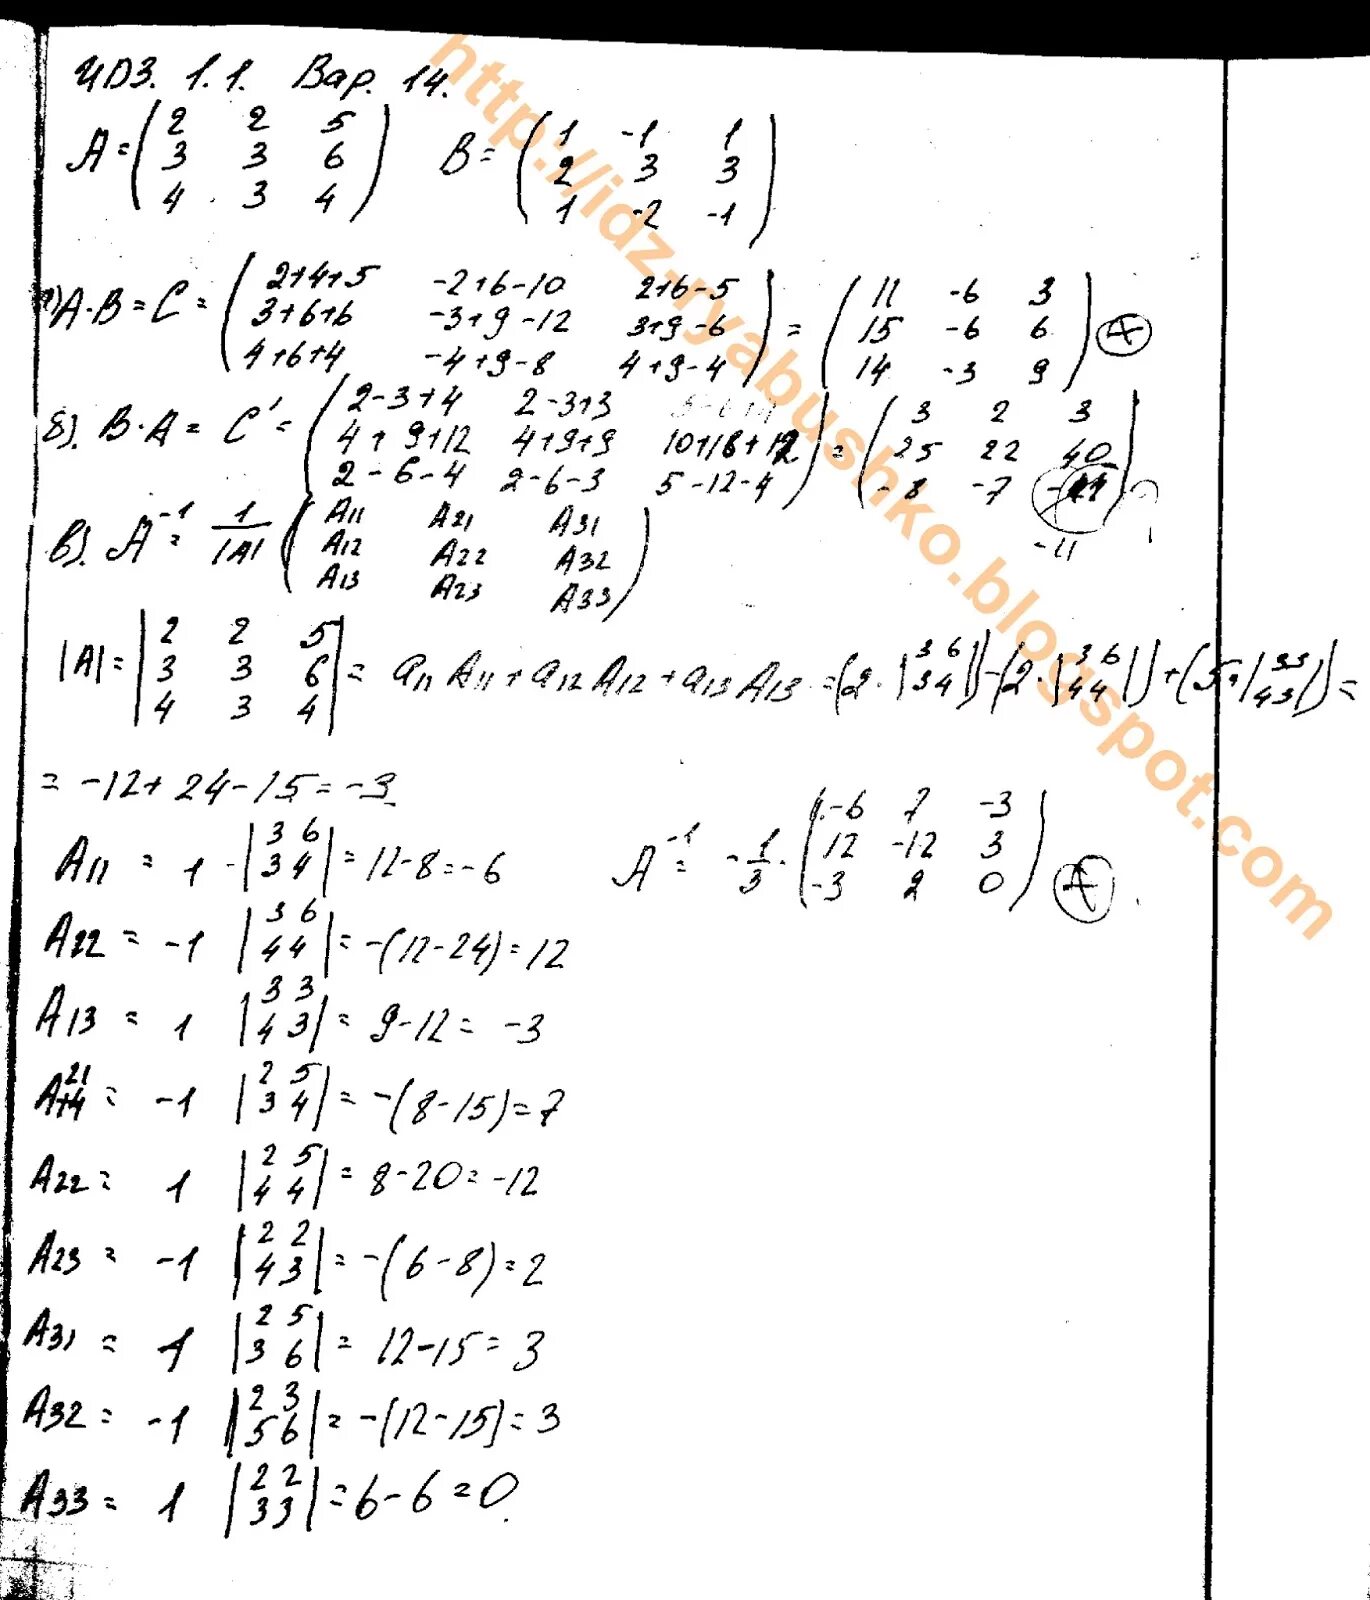 ИДЗ. 1.1. Вар. 14.
A = ( 2 2 5
3 3 6
4 3 4 ) B = ( 1 -1 1
2 3 3
1 -2 -1 )
а) A·B = C = ( 2+4+5 -2+6-10 2+6-5
3+6+6 -3+9-12 3+9-6
4+6+4 -4+9-8 4+9-4 ) = ( 11 -6 3
15 -6 6
14 -3 9 ) +
б). B·A = C' = ( 2-3+4 2-3+3
4+9+12 4+9+9 10+18+12
2-6-4 2-6-3 5-12-4 ) = ( 3 2 3
25 22 40
-8 -7 -11 ) ?
-11
в). A⁻¹ = 1/|A| ( A11 A21 A31
A12 A22 A32
A13 A23 A33 )
|A| = | 2 2 5
3 3 6
4 3 4 | = a11 A11 + a12 A12 + a13 A13 = (2·| 3 6
3 4 |) - (2·| 3 6
4 4 |) + (5·| 3 3
4 3 |) =
= -12 + 24 - 15 = -3
A11 = 1 · | 3 6
3 4 | = 12-8 = -6
A⁻¹ = -1/3 · ( -6 7 -3
12 -12 3
-3 2 0 ) +
A22 = -1 | 3 6
4 4 | = -(12-24) = 12
A13 = 1 | 3 3
4 3 | = 9-12 = -3
A21 = -1 | 2 5
3 4 | = -(8-15) = 7
A22 = 1 | 2 5
4 4 | = 8-20 = -12
A23 = -1 | 2 2
4 3 | = -(6-8) = 2
A31 = 1 | 2 5
3 6 | = 12-15 = 3
A32 = -1 | 2 3
5 6 | = -(12-15) = 3
A33 = 1 | 2 2
3 3 | = 6-6 = 0.
http://idz-ryabushko.blogspot.com